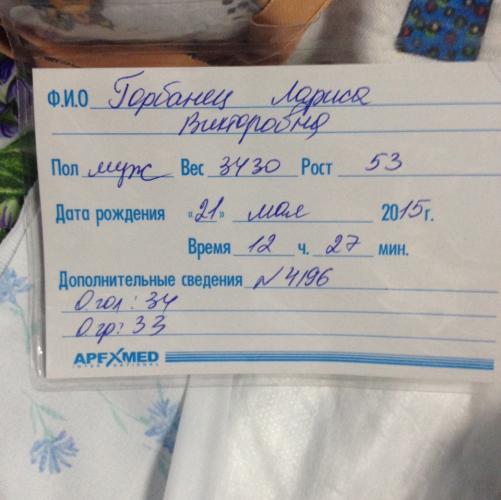 Ф.И.О Горбанец Лариса
Викторовна
Пол муж Вес 3430 Рост 53
Дата рождения «21» мая 2015г.
Время 12 ч. 27 мин.
Дополнительные сведения N4196
О.гол: 34
О.гр: 33
APEXMED
INTERNATIONAL